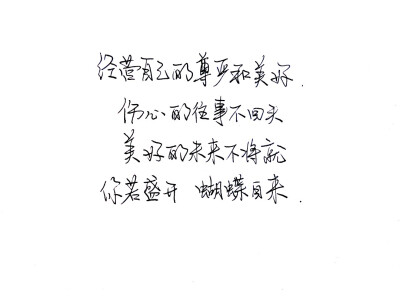 经营自己的尊严和美好.
伤心的往事不回头
美好的未来不将就
你若盛开 蝴蝶自来.